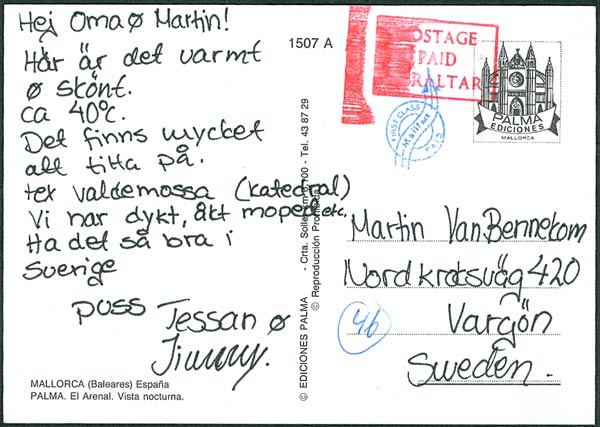 Hej Oma ø Martin!
Här är det varmt
ø skönt.
ca 40°c.
Det finns mycket
att titta på.
tex valdemossa (katedral)
Vi har dykt, åkt moped etc.
Ha det så bra i
Sverige
puss Tessan ø
Jimmy.
MALLORCA (Baleares) España
PALMA. El Arenal. Vista nocturna.
1507 A
© EDICIONES PALMA - Crta. Soller - Tel. 43 87 29
© Reproducción Prohibida
OSTAGE
PAID
RALTAR
FIRST CLASS
Mailmat
PAID
PALMA
EDICIONES
MALLORCA
Martin Van Bennekom
Nordkrotsväg 420
Vargön
Sweden.
46